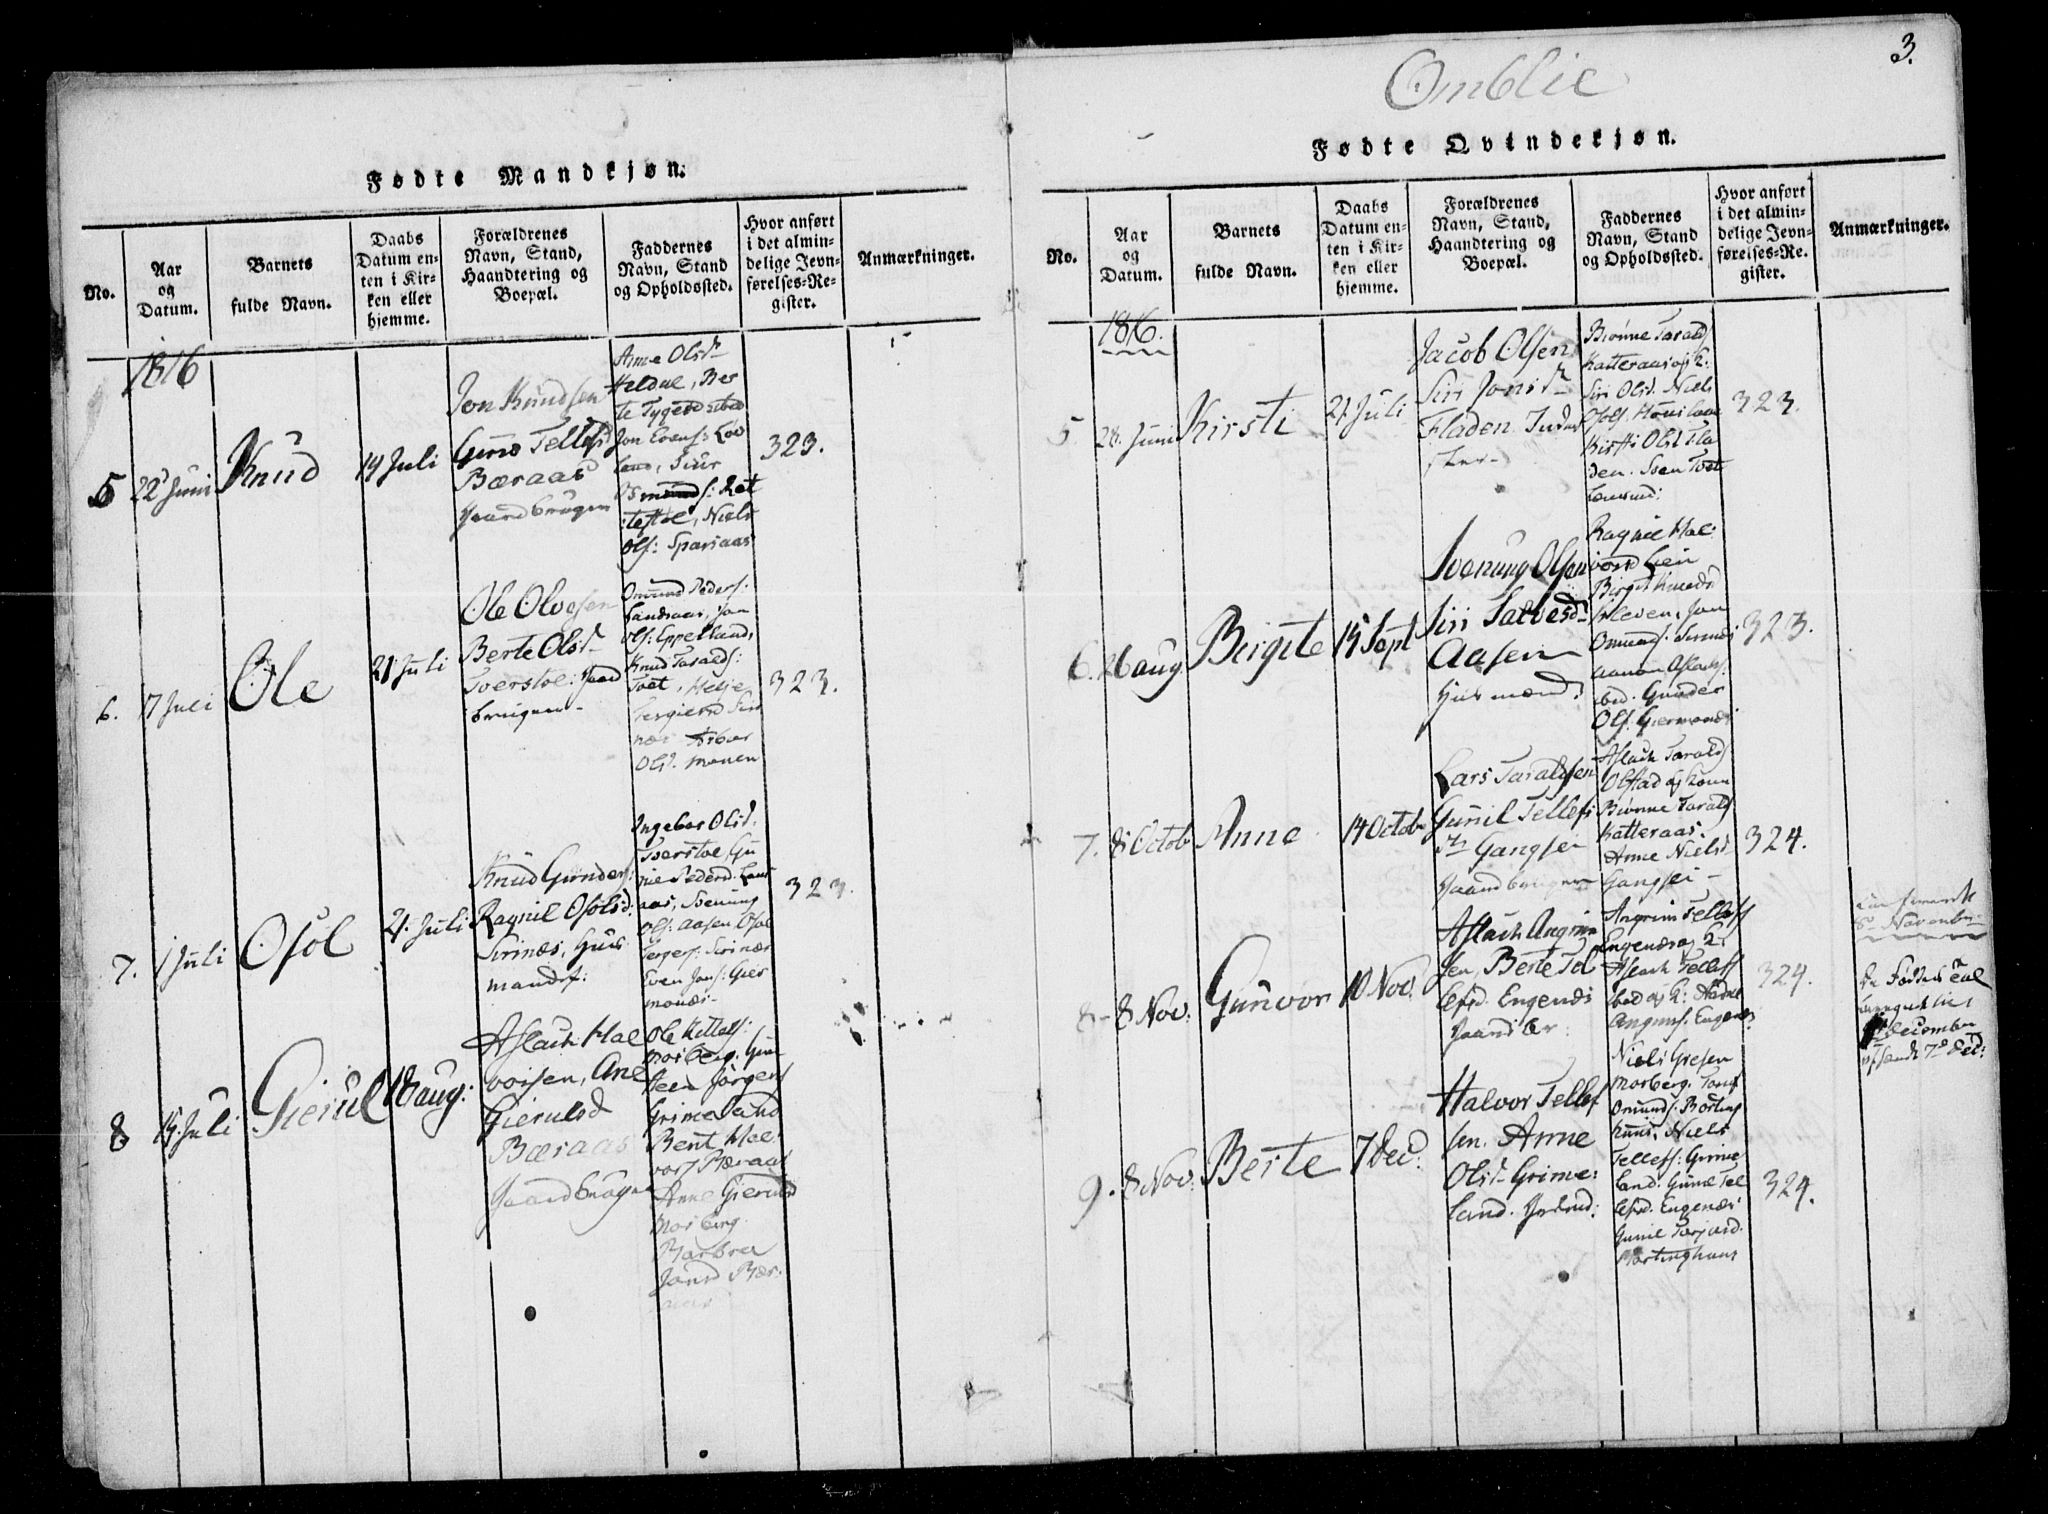 Fødte Mandkjøn.
No.
Aar
og
Datum.
Barnets
fulde Navn.
Daabs
Datum en-
ten i Kir-
ken eller
hjemme.
Forældrenes
Navn, Stand,
Haandtering og
Boepæl.
Faddernes
Navn, Stand
og Opholdssted.
Hvor anført
i det almin-
delige Jevn-
førelses-Re-
gister.
Anmærkninger.
1816
5
22 Juni
Knud
14 Juli
Jon Knudsen
Guno Tellefsd
Bæraas
Gaardbruger
Anne Olsd
Heldal, Ber
te Tygesd
Jon Evens: Lov
land, Siur
Osmunds: Ret
testøl, Niels
Ols: Sparsaas
323.
6.
7 Juli
Ole
21 Juli
Ole Olvesen
Berte Olsd
Tverstøe: Gaard
bruger
Omund Peders.
Landsaas, Jon
Ols: Eppelland,
Knud Taralds:
Tvet, Helje
Olsd. Monen
323.
7.
1 Juli
Osol
21. Juli
Knud Gunders:
Ragnil Osolsd:
Sirinæs, Huus
mandsf:
Ingebor Olsd.
Tverstøe, Gu
nil Pedersd. Lans
aas, Svenung
Ols: Aasen Osol
Terges: Sirinæs
Even Jons: Gier
monæs
323.
8
15. Juli
Gierul
18 aug:
Aslach Hal
vorsen, Ane
Gierulsd
Bæraas
Gaardbruger
Ole Kittels:
Mosberg. Gun
Jørgens
Grimeland
Bent Hal
vors Bæraas
Anne Gieruls
Mosberg.
Barbroe
Jonsd Bær
aas
Omblie
3.
Fødte Qvindekjøn.
No.
Aar
og
Datum.
Barnets
fulde Navn.
Daabs
Datum en-
ten i Kir-
ken eller
hjemme.
Forældrenes
Navn, Stand,
Haandtering og
Boepæl.
Faddernes
Navn, Stand
og Opholdssted.
Hvor anført
i det almin-
delige Jevn-
førelses-Re-
gister.
Anmærkninger.
1816.
5
28. Juni
Kirsti
21 Juli
Jacob Olsen
Siri Jonsd
Fladen Inder
ster
Biønne Taralds
Katteraas og K:
Siri Olsd. Niels
Kirsti Olsd Fla
den. Sven Tvet
323.
6.
26 aug
Birgite
15 Sept
Svenung Olsen
Siri Salvesd
Aasen
Huusmænd
Ragnil Hal
vorsd Lien
Birgit Knudsd
Kleven, Jon
Omunds. Sirinæs
Gunder
Ols. Giermonæs
323.
7.
8 Octob
Anne
14 Octob
Lars Taraldsen
Gunil Tellefs
D. Gangsei
Gaardbruger
Aslach Taralds
Olstad og Kone
Biønne Taralds
Katteraas.
Anne Nielsd
Gangsei
324.
8
8 Nov:
Gunvor
10 Nov:
Aslach Angrim
sen, Berte Tel
lefsd. Engenæs
Angrim Tellefs
Engenæs og K:
Aslach Tellefs
og K:
Angrims. Engenæs
324.
9.
8 Nov:
Berte
7 Dec:
Halvor Tellef
sen. Anne
Olsd. Grime:
land.
Niels Gresen
Mosberg. Tone
Omunds. Børting
huus, Niels
Tellefs: Grime
land. Gune Tel
lefsd. Engenæs
Gunil Torjusd.
Børtinghuus
324.
8 November
December
7 Dec: